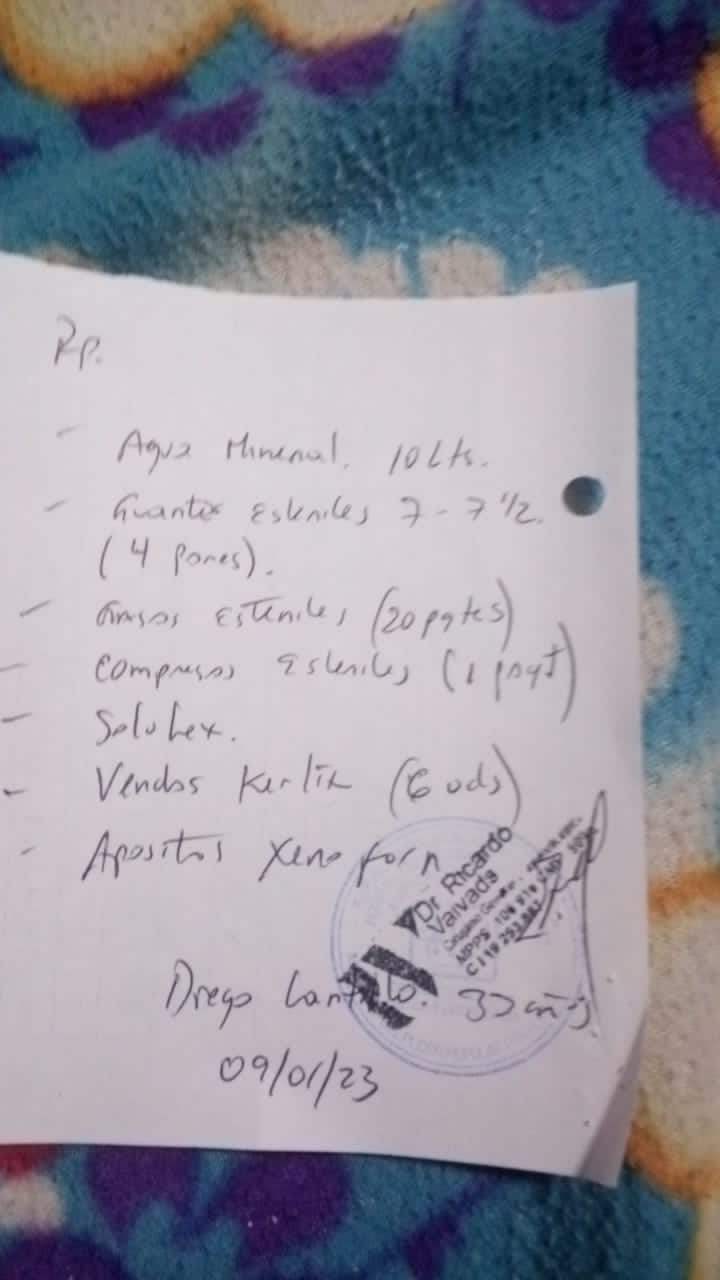 Rp.
- Agua Mineral. 10 Lts.
- Guantes Esteriles 7 - 7 1/2.
(4 pares).
- Gasas Esteriles (20 pqtes)
- Compresas Esteriles (1 paqt)
- Solubex.
- Vendas Kerlix (6 uds)
- Apositos Xeno forn
Dr. Ricardo
Valvada
Cirujano General
MPPS
C I 19 293
Diego
09/01/23